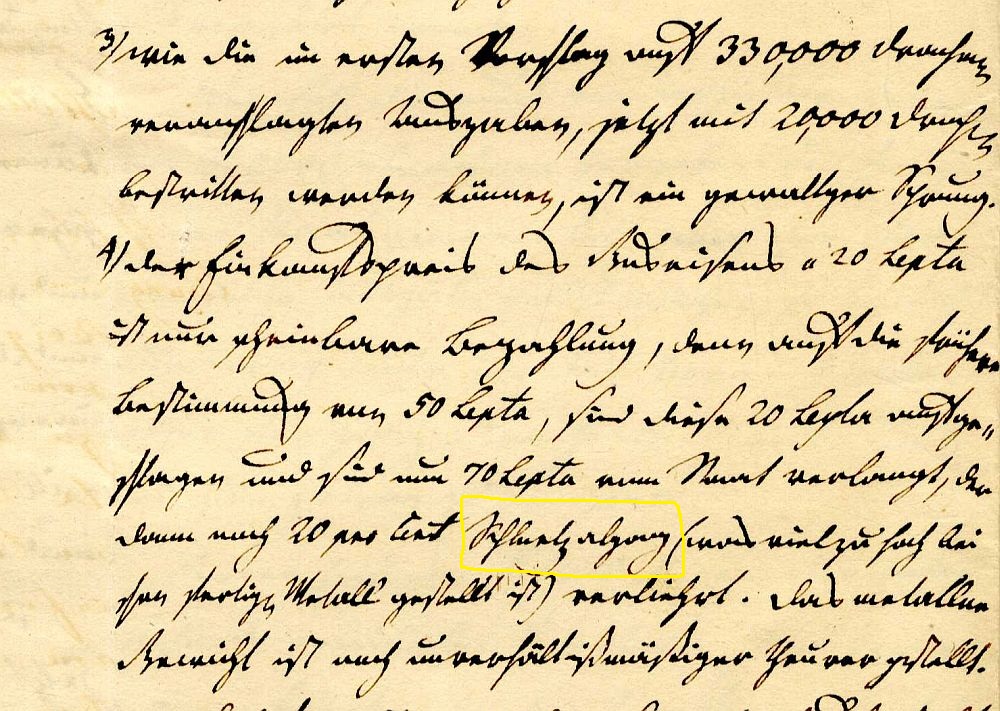 3) wie die im ersten Vorschlag auf 330,000 Drachmen
veranschlagten Ausgaben, jetzt mit 20,000 Drachm
bestritten werden können, ist ein gewaltger Sprung.
4) der Einkaufspreis des Gußeisens a 20 Lepta
ist nur scheinbare Bezahlung, denn auf die frühere
Bestimmung von 50 Lepta, sind diese 20 Lepta aufge„
schlagen und sind nun 70 Lepta vom Staat verlangt, der
dann noch 20 pro Cent Schmelzabgang (was viel zu hoch bei
schon fertigen Metall gestellt ist) verliehrt. Das metallne
Gewicht ist auch unverhältnißmäßiger theurer gestellt.